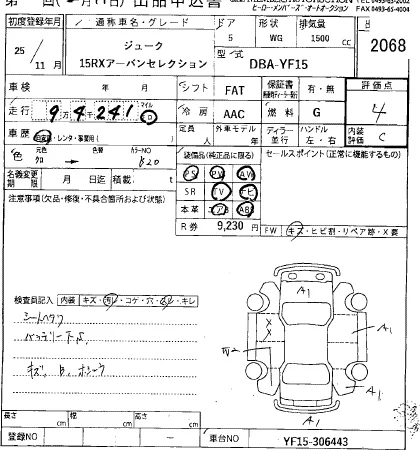 出品申込書
ヒーロー・メンバーズ・オートオークション FAX 0493-65-4004
初度登録年月 通称車名・グレード ドア 形状 排気量
25 / 11月 ジューク 5 WG 1500 cc 2068
15RXアーバンセレクション 型式 DBA-YF15
車検 年 月 シフト FAT 保証書 有・無 評価点
走行 9万4241 マイル 冷房 AAC 燃料 G 4
車歴 自家用・レンタ・事業用( ) 定員 外車モデル ディラー 並行 ハンドル 左・右 内装評価 C
人 年
色 元色 クロ → 色替 カラーNO 820
装備品(純正品に限る) セールスポイント(正常に機能するもの)
名義変更期限 月 日迄 積載 t
PS PW AW
SR TV ナビ
本革 エアB ABS
R券 9,230 円
注意事項(欠品・修復・不具合箇所および状態)
FW キズ・ヒビ割・リペア跡・X要
検査員記入 内装 キズ・汚レ・コゲ・穴・スレ・キレ
A1
シートヘタリ
A1
バッテリー下ル
W2
キズ、
A1
A1
長さ cm 幅 cm 高さ cm
登録NO ー 車台NO YF15-306443